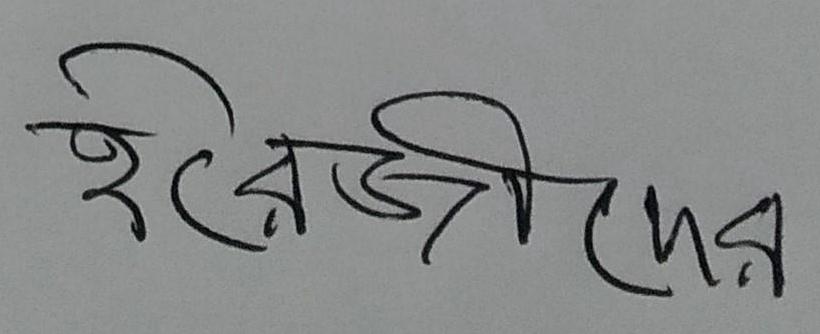 ইরেজীদের